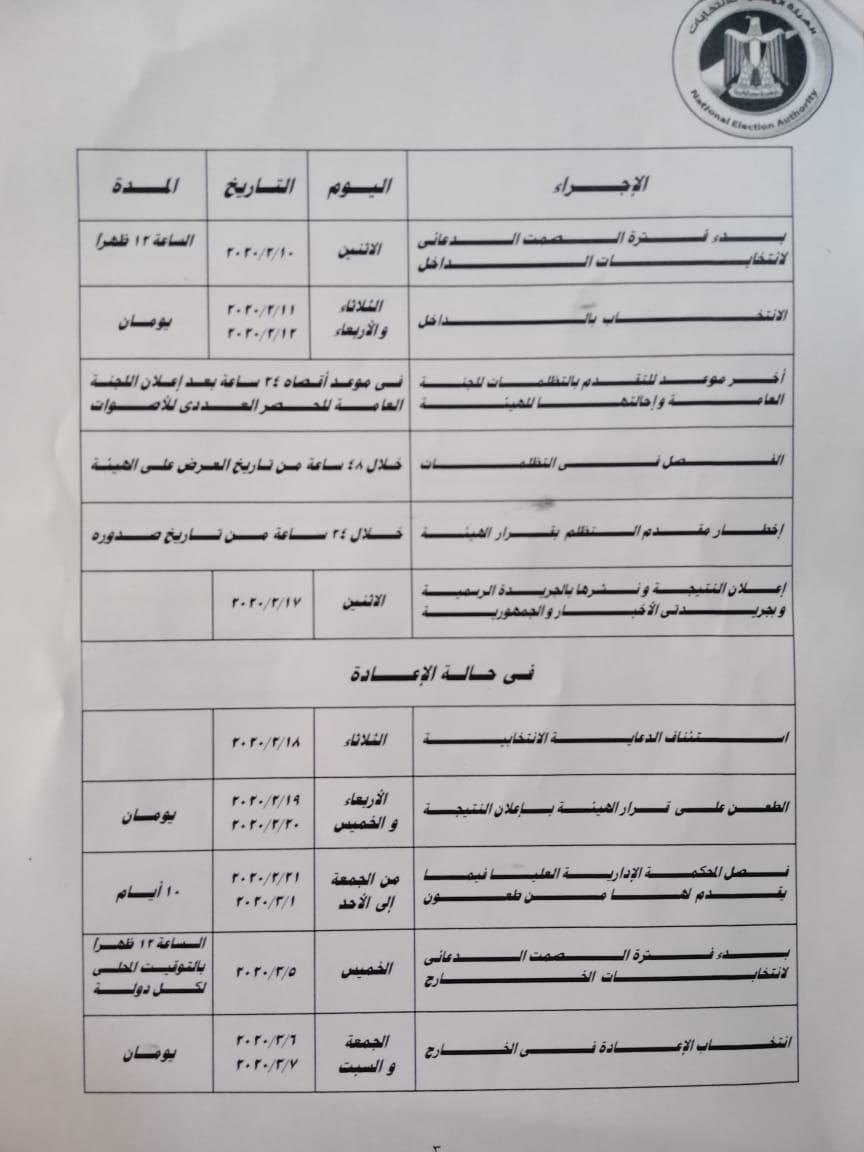 الهيئة الوطنية للانتخابات
National Election Authority
الإجراء اليوم التاريخ المدة
بدء فترة الصمت الدعائى
لانتخابات الداخل
الاثنين
٢٠٢٠/٢/١٠
الساعة ١٢ ظهراً
الانتخاب بالداخل
الثلاثاء
والأربعاء
٢٠٢٠/٢/١١
٢٠٢٠/٢/١٢
يومان
أخر موعد للتقدم بالتظلمات للجنة
العامة وإحالتها للهيئة
فى موعد أقصاه ٢٤ ساعة بعد إعلان اللجنة
العامة للحصر العددى للأصوات
الفصل فى التظلمات
خلال ٤٨ ساعة من تاريخ العرض على الهيئة
إخطار مقدم التظلم بقرار الهيئة
خلال ٢٤ ساعة من تاريخ صدوره
إعلان النتيجة ونشرها بالجريدة الرسمية
وبجريدتى الأخبار والجمهورية
الاثنين
٢٠٢٠/٢/١٧
فى حالة الإعادة
استئناف الدعاية الانتخابية
الثلاثاء
٢٠٢٠/٢/١٨
الطعن على قرار الهيئة بإعلان النتيجة
الأربعاء
و الخميس
٢٠٢٠/٢/١٩
٢٠٢٠/٢/٢٠
يومان
فصل المحكمة الإدارية العليا فيما
يقدم لها من طعون
من الجمعة
إلى الأحد
٢٠٢٠/٢/٢١
٢٠٢٠/٣/١
١٠ أيام
بدء فترة الصمت الدعائى
لانتخابات الخارج
الخميس
٢٠٢٠/٣/٥
الساعة ١٢ ظهراً
بالتوقيت المحلى
لكل دولة
انتخاب الإعادة فى الخارج
الجمعة
و السبت
٢٠٢٠/٣/٦
٢٠٢٠/٣/٧
يومان
٣